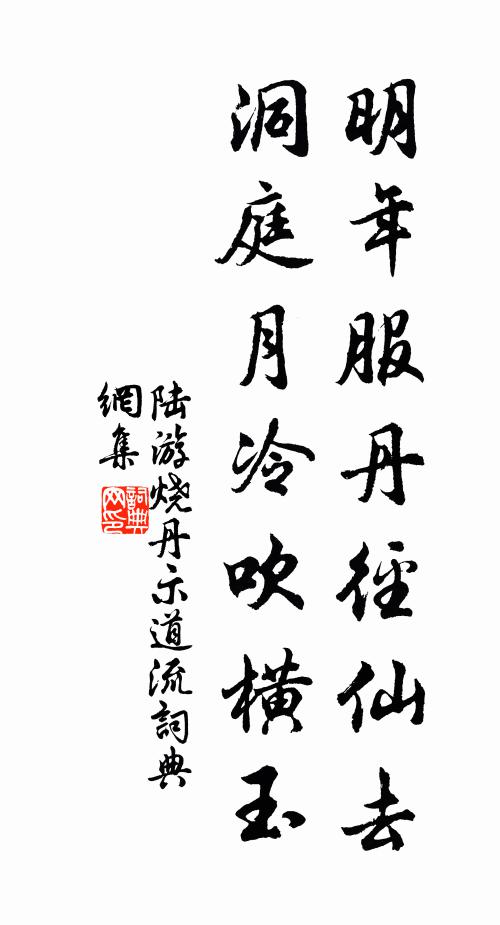 明年服丹徑仙去
洞庭月冷吹横玉
陆游烧丹示道流詞典
網集
詞典
网印